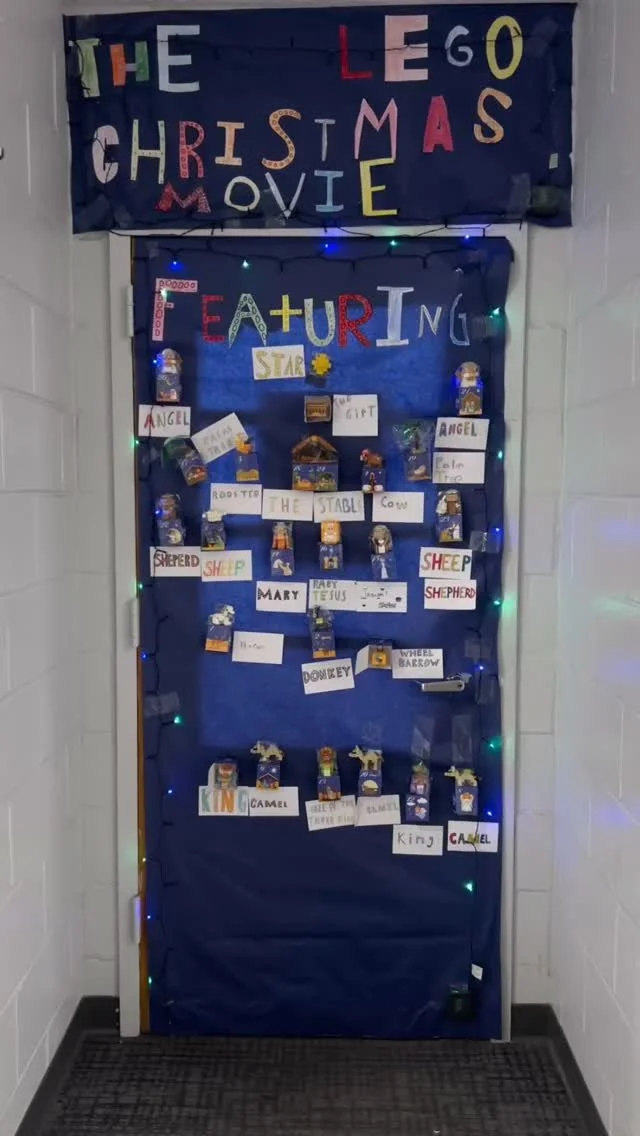 THE LEGO
CHRISTMAS
MOVIE
FEATURING
STAR
THE GIFT
ANGEL
ANGEL
PALM TREE
Palm Tree
ROOSTER
THE STABLE
Cow
SHEPERD
SHEEP
SHEEP
MARY
BABY JESUS
Joseph
SHEPHERD
DONKEY
WHEEL BARROW
KING
CAMEL
ONE OF THE THREE KINGS
CAMEL
King
CAMEL